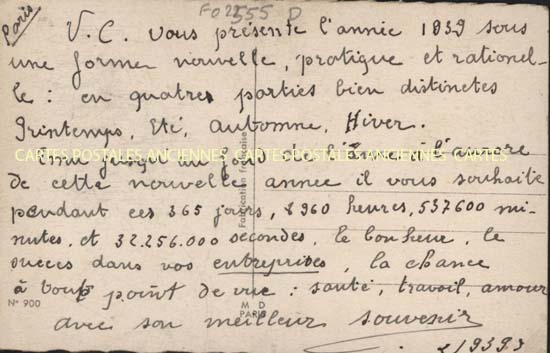 Paris
FO 2555 D
V.C. vous présente l'année 1939 sous
une forme nouvelle, pratique et rationel-
le : en quatres parties bien distinctes
Printemps, Eté, automne, Hiver.
Emu jusqu'au fond de l'aurore
CARTES POSTALES ANCIENNES CARTES POSTALES ANCIENNES CARTES
de cette nouvelle année il vous souhaite
pendant ces 365 jours, 8960 heures, 537600 mi-
nutes, et 32.256.000 secondes, le bonheur, le
succès dans vos entreprises, la chance
à tous point de vue : santé, travail, amour
avec son meilleur souvenir
Fabrication française
N° 900
M D
PARIS